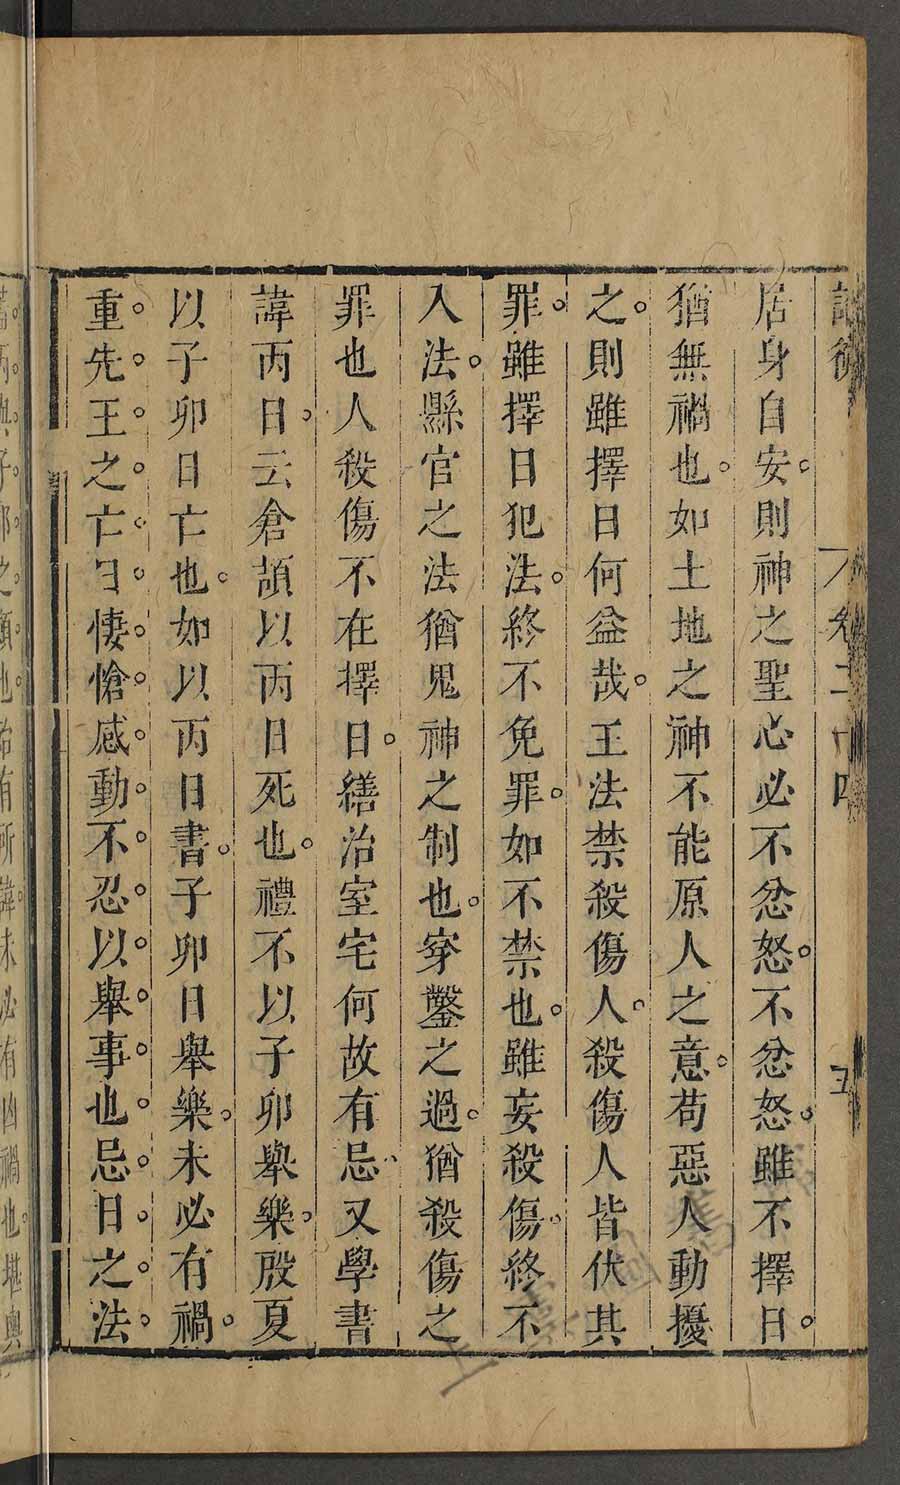 卷二十四
五
居身自安。則神之聖心必不忿怒。不忿怒。雖不擇日。
猶無禍也。如土地之神不能原人之意。苟惡人動擾
之。則雖擇日何益哉。王法禁殺傷人。殺傷人皆伏其
罪。雖擇日犯法。終不免罪。如不禁也。雖妄殺傷。終不
入法。縣官之法猶鬼神之制也。穿鑿之過。猶殺傷之
罪也人殺傷不在擇日。繕治室宅何故有忌、又學書
諱丙日。云倉頡以丙日死也。禮不以子卯舉樂。殷夏
以子卯日亡也。如以丙日書。子卯日舉樂。未必有禍。
重。先。王。之。亡。日。悽。愴。感。動。不。忍。以。舉。事。也。忌。日。之。法。